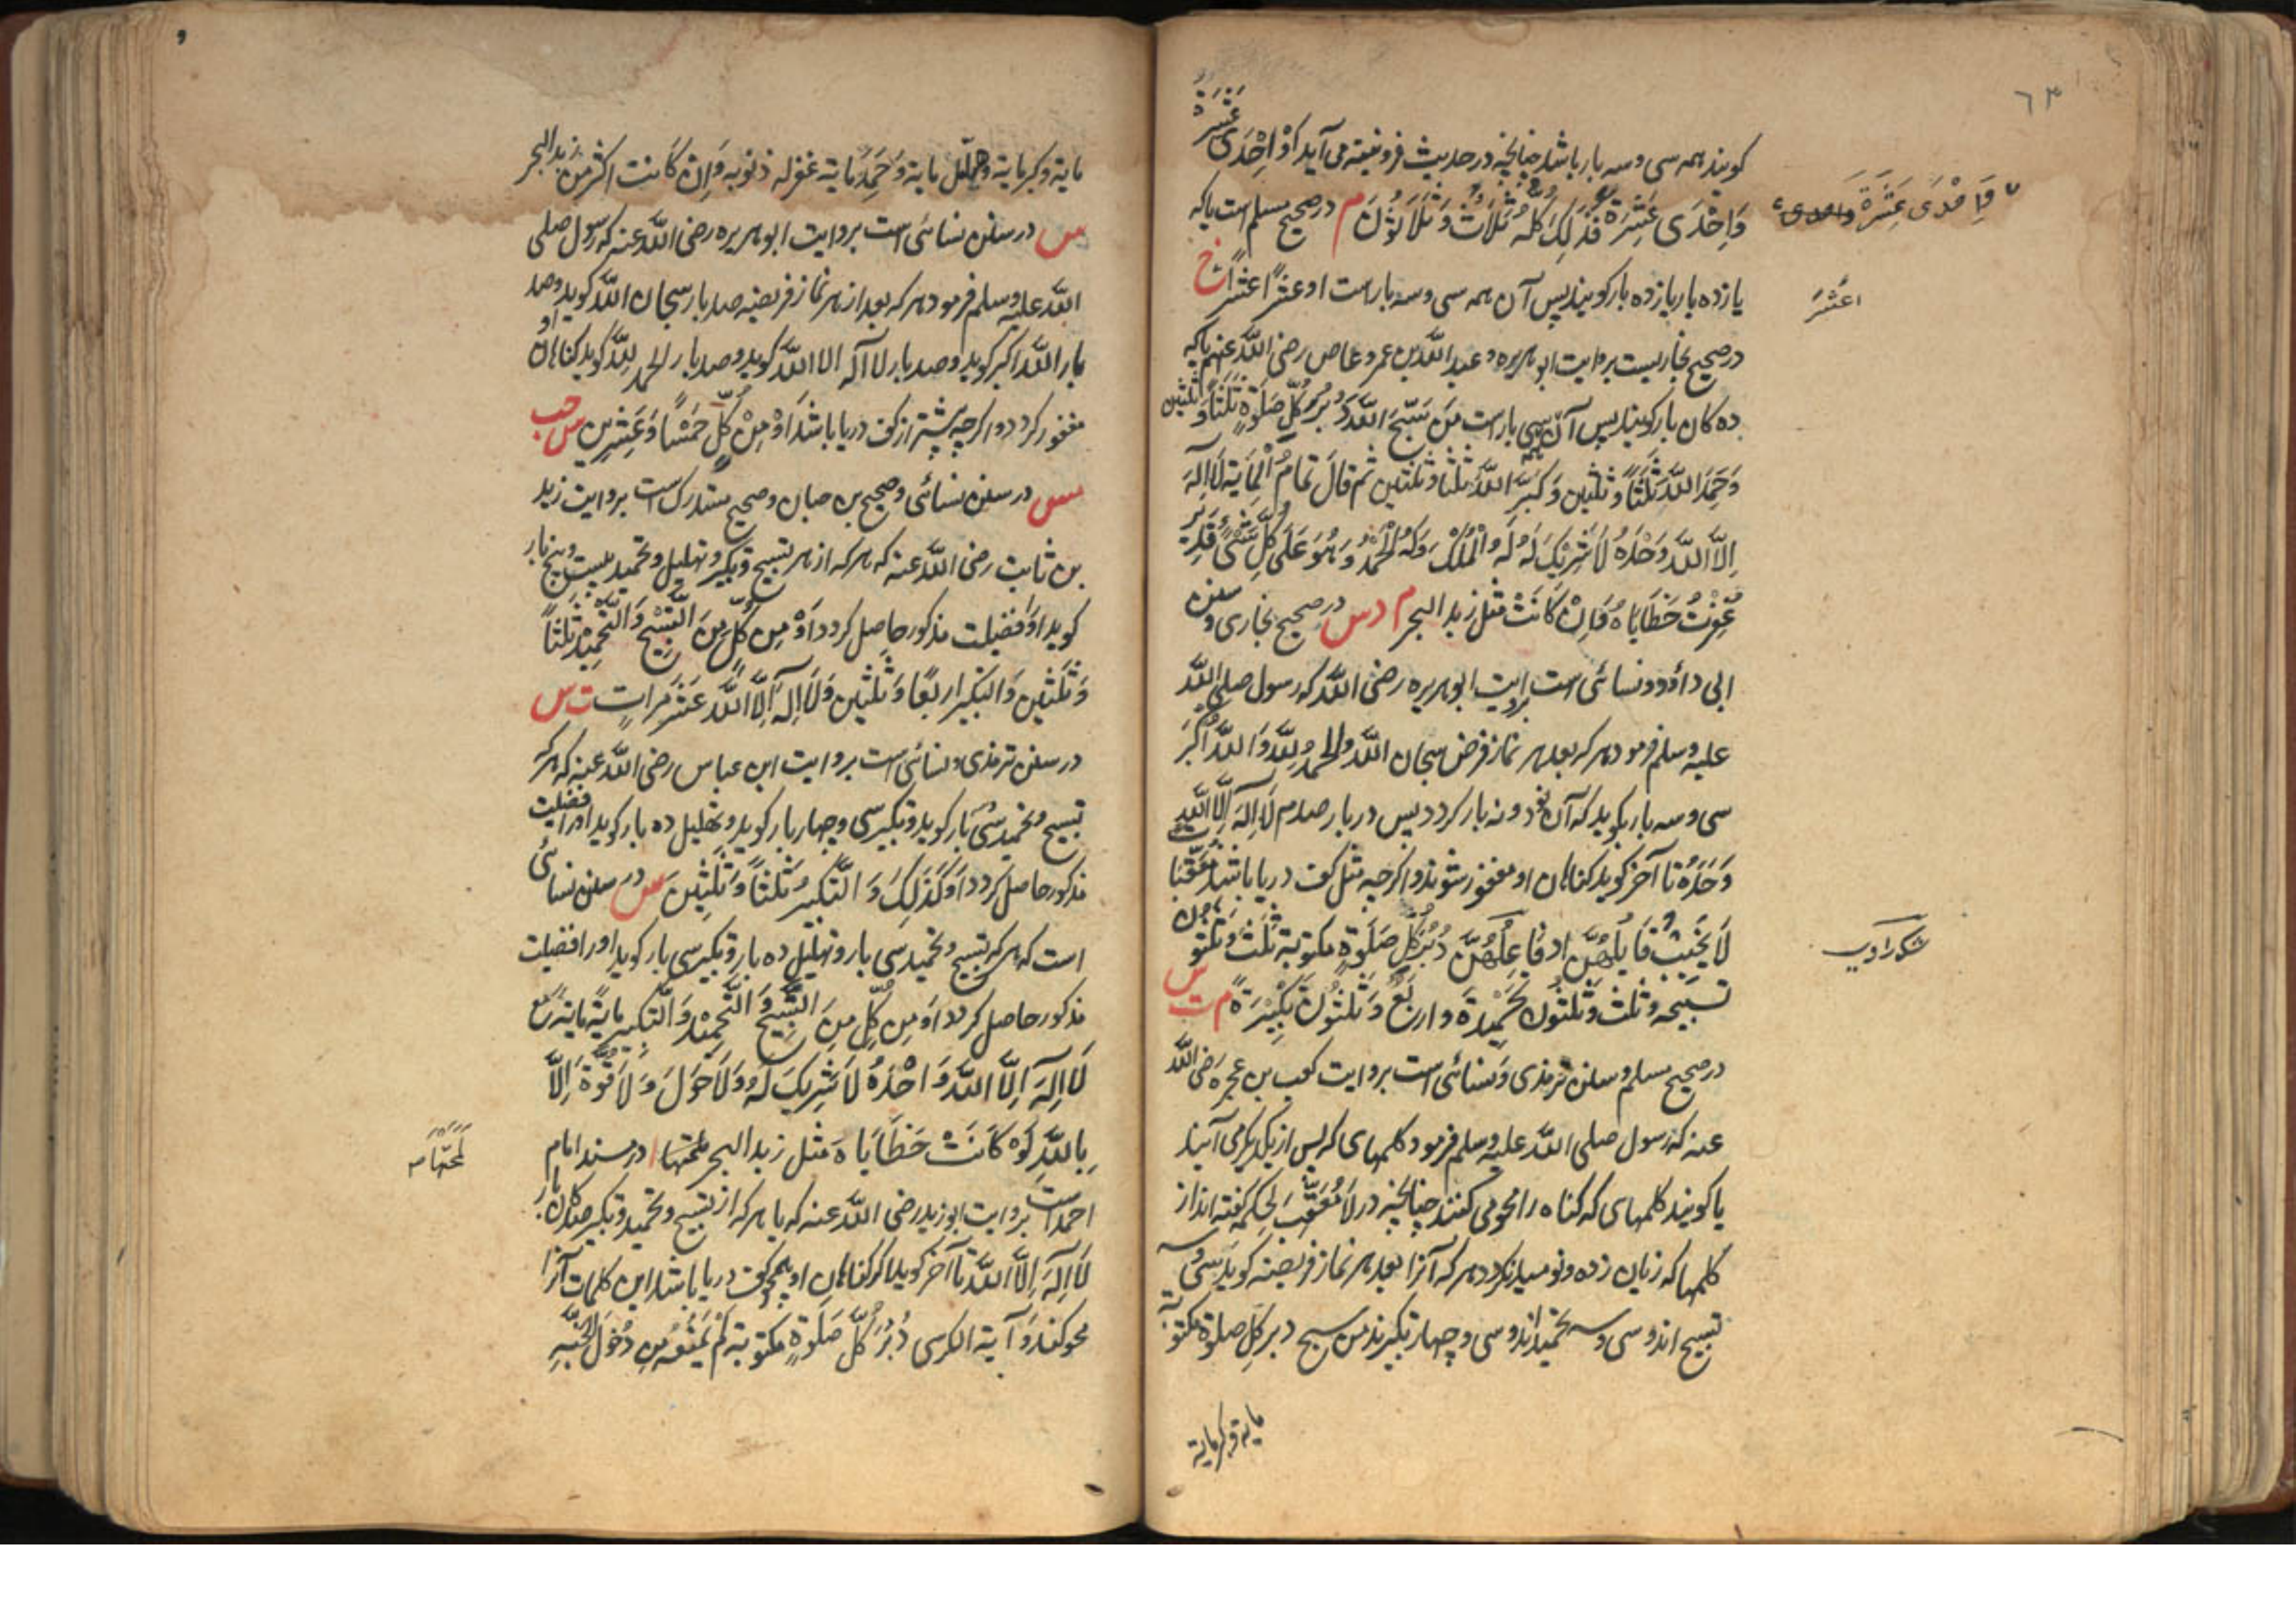 ٦٣
کویند همه سی و سه بار باشد چنانچه در حدیث فرونیعته می آید اَوْ اِحْدَی عَشَرَةَ
وَاِحْدَی عَشْرَةَ فَذٰلِكَ كُلُّهُ ثَلَاثٌ وَثَلَاثُوْنَ م در صحیح مسلم است یا که
وَاِحْدَی عَشَرَةَ وَاحدی
یازده بار یازده بار کویند پس آن همه سی و سه بار است او عشرًا عشرًا خ
اعَشَر
در صحیح بخاریست بروایت ابو هریره و عبد الله بن عمرو عاص رضی الله عنهم یا که
ده کان بار کویند پس آن همه سی بار است مَنْ سَبَّحَ اللّٰهَ دُبُرَ كُلِّ صَلٰوةٍ ثَلٰثًا وَثلٰثین
وَحَمِدَ اللّٰهَ ثَلٰثًا وثلٰثین وَكَبَّرَ اللّٰهَ ثلٰثا وثلٰثین ثم قَالَ تَمَامُ الْمِایَةِ لَا اِلٰهَ
اِلَّا اللّٰهُ وَحْدَهُ لَا شَرِیْكَ لَهُ لَهُ الْمُلْكُ وَلَهُ الْحَمْدُ وَهُوَ عَلٰی كُلِّ شَیْءٍ قَدِیْر
غُفِرَتْ خَطَایَاهُ وَاِنْ كَانَتْ مثل زبد البحر م د س در صحیح بخاری و سنن
ابی داؤد و نسائی است بروایت ابو هریره رضی الله که رسول صلی الله
علیه وسلم فرمود هر که بعد هر نماز فرض سبحان اللّٰه والحمدُ لِلّٰه وَاللّٰهُ اَكْبَر
سی و سه بار بکوید که آن نود و نه بار کردد پس در بار صدم لَا اِلٰهَ اِلَّا اللّٰه
وَحْدَهُ تا آخر کوید کناهان او مغفور شوند و اکرچه مثل کف دریا باشد معقبات
لَا یَخِیْبُ قَایِلُهُنَّ اوفَاعِلُهُنَّ دُبُرَ كُلِّ صَلٰوةٍ مکتوبة ثلٰث وثلٰثون
شک راوی
تسبیحه وثلٰث وَثَلٰثُونَ تَحْمِیْدَةً واربَعٌ وَثَلٰثُونَ تَكْبِیْرَةً م ت س
در صحیح مسلم و سنن ترمذی و نسائی است بروایت کعب بن عجره رضی الله
عنه که رسول صلی الله علیه وسلم فرمود کلمهای که پس از یکدیکر می آیند
یا کویند کلمهای که کناه را محو می کنند چنانچه در لَا مُعَقِّبَ لِحُكْمِهِ کفته اند از
کلمها که زیان زده و نومید نکردد هر که آنرا بعد هر نماز فریضه کوید سی و سه
تسبیح اند و سی و سه تحمید اند و سی و چهار تکبیرند من سبح دبر کل صلوة مکتوبة
مایة وکبر مایة
مایة وکبر مایة وهلّل مایة وَحَمِدَ مایة غفر له ذنوبه وَاِنْ كَانَت اكثرَ مِنْ زبد البحر
س در سنن نسائی است بروایت ابو هریره رضی الله عنه که رسول صلی
الله علیه وسلم فرمود هر که بعد از هر نماز فریضه صد بار سبحان الله کوید و صد
بار الله اکبر کوید و صد بار لا اله الا الله کوید و صد بار الحمد لِلّٰه کوید کناهان او
مغفور کردد و اکرچه بیشتر از کف دریا باشد اَوْ مِنْ كُلٍّ خَمْسًا وَعَشِرِین س حب
مس در سنن نسائی و صحیح بن حبان و صحیح مستدرک است بروایت زید
بن ثابت رضی الله عنه که هر که از هر تسبیح و تکبیر و تهلیل و تحمید بیست و پنج بار
کوید او فضیلت مذکور حاصل کردد اَوْ مِن كُلٍّ مِنَ التَّسْبِیْحِ وَالتَّحْمِیْدِ ثَلٰثًا
وَثَلٰثِین وَالتكبیر اربعًا وَثَلٰثِین وَلَا اِلٰهَ اِلَّا اللّٰهُ عَشَرَ مَرات ت س
در سنن ترمذی و نسائی است بروایت ابن عباس رضی الله عنه که هر که
تسبیح و تحمید سی بار کوید و تکبیر سی و چهار بار کوید و تهلیل ده بار کوید او را فضیلت
مذکور حاصل کردد اَوْ كَذٰلِكَ وَالتَّكبیر ثَلٰثًا وَّثَلٰثِیْنَ س در سنن نسائی
است که هر که تسبیح و تحمید سی بار و تهلیل ده بار و تکبیر سی بار کوید او را فضیلت
مذکور حاصل کردد اَوْ مِن كُلٍّ مِنَ التَّسْبِیْحِ وَالتَّحْمِیْدِ وَالتكبیر مایة مایة مع
لَا اِلٰهَ اِلَّا اللّٰهُ وَاحْدَهُ لَا شَرِیكَ لَهُ وَلَا حَوْلَ وَلَا قُوَّةَ اِلَّا
بِاللّٰهِ لَوْ كَانَتْ خَطَایَاهُ مثل زبد البحر لمحتها ا در مسند امام
لَمَحَتْهَا
احمد است بروایت ابو زید رضی الله عنه که یا هر که از تسبیح و تحمید و تکبیر صدکان بار
لَا اِلٰهَ اِلَّا اللّٰه تا آخر کوید اکر کناهان او همچو کف دریا باشد این کلمات آنرا
محو کند وَ آیة الکرسی دُبُرَ كُلِّ صَلٰوةٍ مكتوبة لَمْ یَمْنَعْهُ مِن دُخُوْلِ الْجَنَّةِ